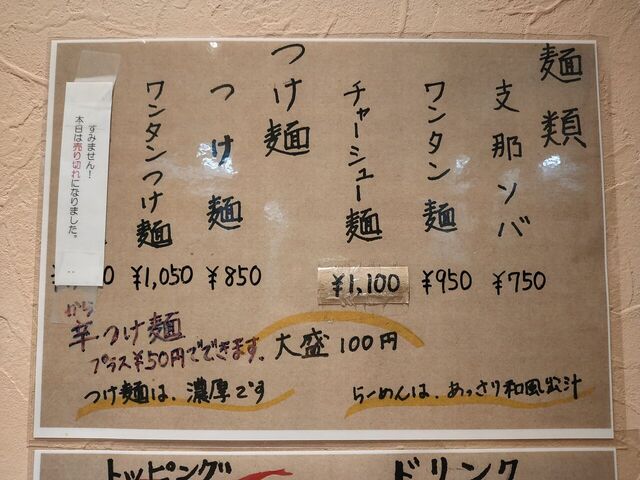 麺類
支那ソバ
¥750
ワンタン麺
¥950
チャーシュー麺
¥1,100
つけ麺
つけ麺
¥850
ワンタンつけ麺
¥1,050
すみません!
本日は売り切れになりました。
大盛100円
から
羊つけ麺
プラス¥50円でできます。
らーめんは、あっさり和風出汁
つけ麺は、濃厚です
トッピング
ドリンク